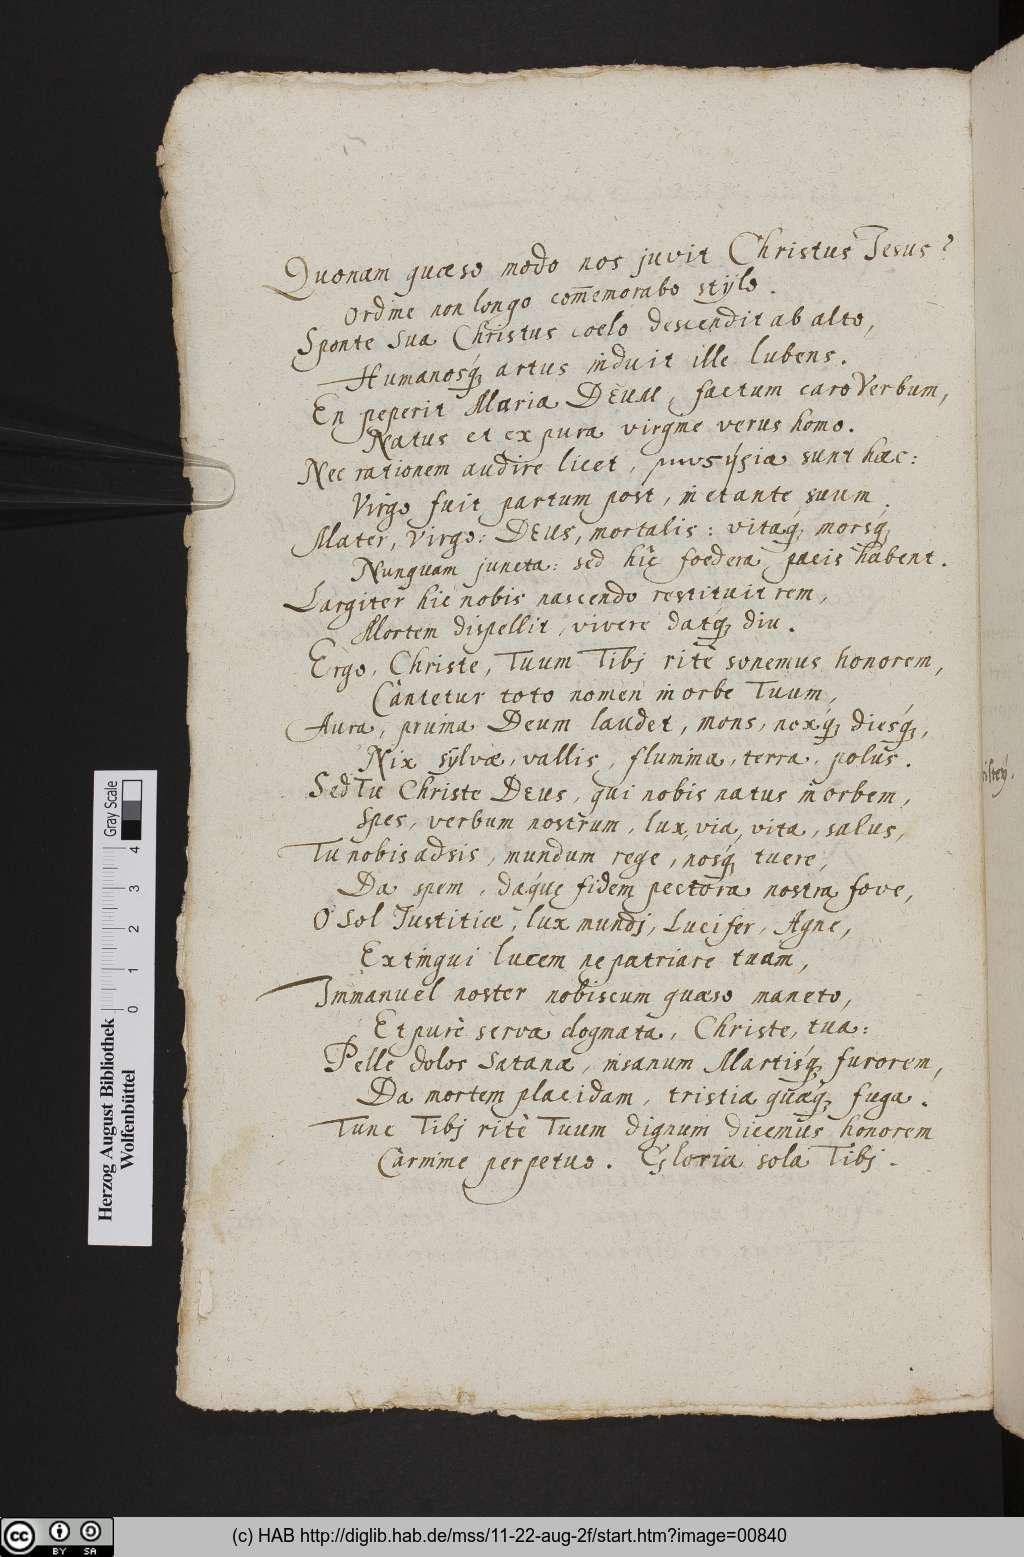 Quonam quæso modo nos juvit Christus Jesus?
Ordine non longo com̃emorabo stylo.
Sponte sua Christus coelo descendit ab alto,
Humanosq́; artus induit ille lubens.
En peperit Maria DEUM, factum caro Verbum,
Natus et ex pura virgine verus homo.
Nec rationem audire licet, sunt hæc:
Virgo fuit partum post, in et ante suum.
Mater, Virgo: DEUS, mortalis: vitaq́; morsq́;
Nunquam juncta: sed hic foedera pacis habent.
Largiter hic nobis nascendo restituit rem,
Mortem dispellit, vivere datq́; diu.
Ergo, Christe, Tuum Tibj ritè sonemus honorem,
Cantetur toto nomen in orbe Tuum,
Aura, pruina Deum laudet, mons, noxq́; diesq́;,
Nix sylvæ, vallis, flumina, terra, polus.
Sed Tu Christe DEUS, qui nobis natus in orbem,
Spes, verbum nostrum, lux, via, vita, salus,
Tu nobis adsis, mundum rege, nosq́; tuere,
Da spem, daq́ue fidem pectora nostra fove,
O Sol Justitiæ, lux mundj, Lucifer, Agne,
Extingui lucem ne patriare tuam,
Immanuel noster nobiscum quæso maneto,
Et purè serva dogmata, Christe, tua:
Pelle dolos Satanæ, insanum Martisq́; furorem,
Da mortem placidam, tristia quæq́; fuga.
Tunc Tibj ritè Tuum dignum dicemus honorem
Carmine perpetuo. Gloria sola Tibj.
Herzog August Bibliothek
Wolfenbüttel
0 1 2 3 4
Gray Scale
(c) HAB http://diglib.hab.de/mss/11-22-aug-2f/start.htm?image=00840
cc BY SA